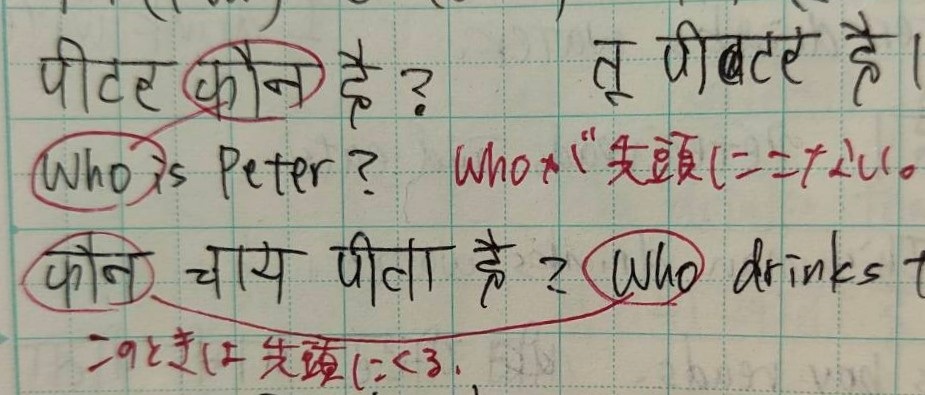 पीटर कौन है? तू पीटर है।
Who is Peter? Whoが先頭にこない。
कौन चाय पीता है? Who drinks
このときは先頭にくる.